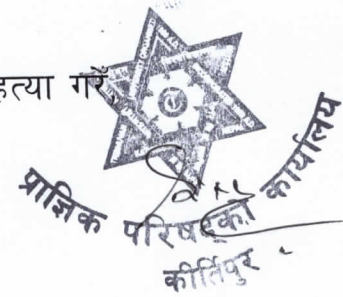 हत्या गरेँ,
प्राज्ञिक परिषद्को कार्यालय
कीर्तिपुर